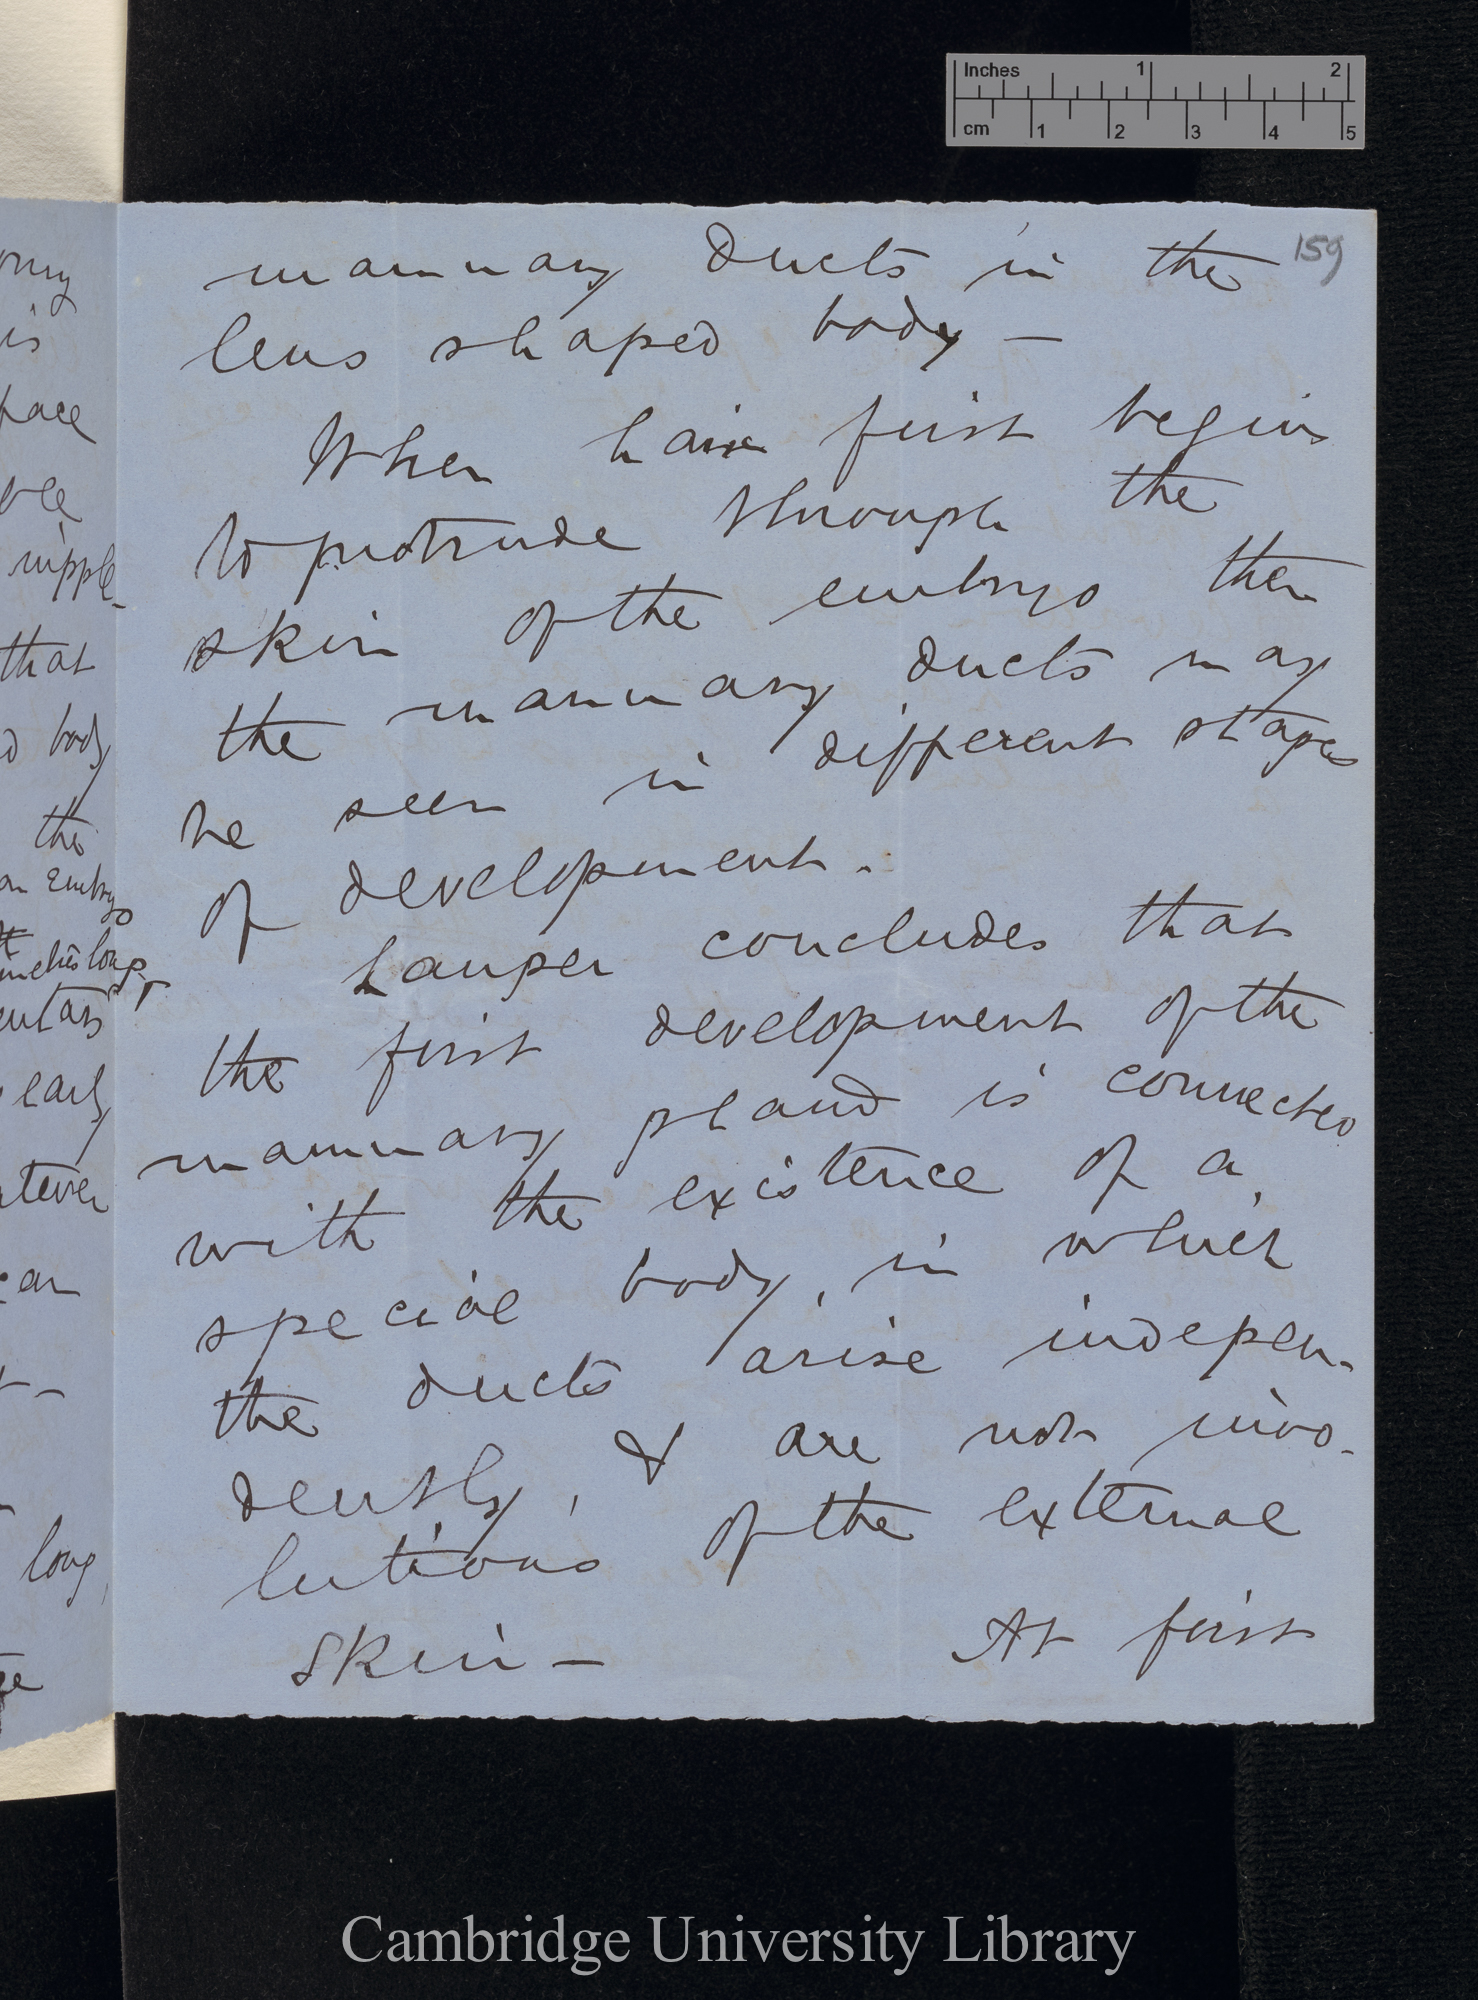 Inches 1 2
cm 1 2 3 4 5
159
mammary ducts in the
lens shaped body —
When hair first begins
to protrude through the
skin of the embryo then
the mammary ducts may
be seen in different stages
of development.
Langer concludes that
the first development of the
mammary gland is connected
with the existence of a
special body, in which
the ducts arise indepen-
dently, & are not invo-
lutions of the external
skin —
At first
is
face
nipple
that
body
the
an embryo
inches long
early
can
long,
Cambridge University Library